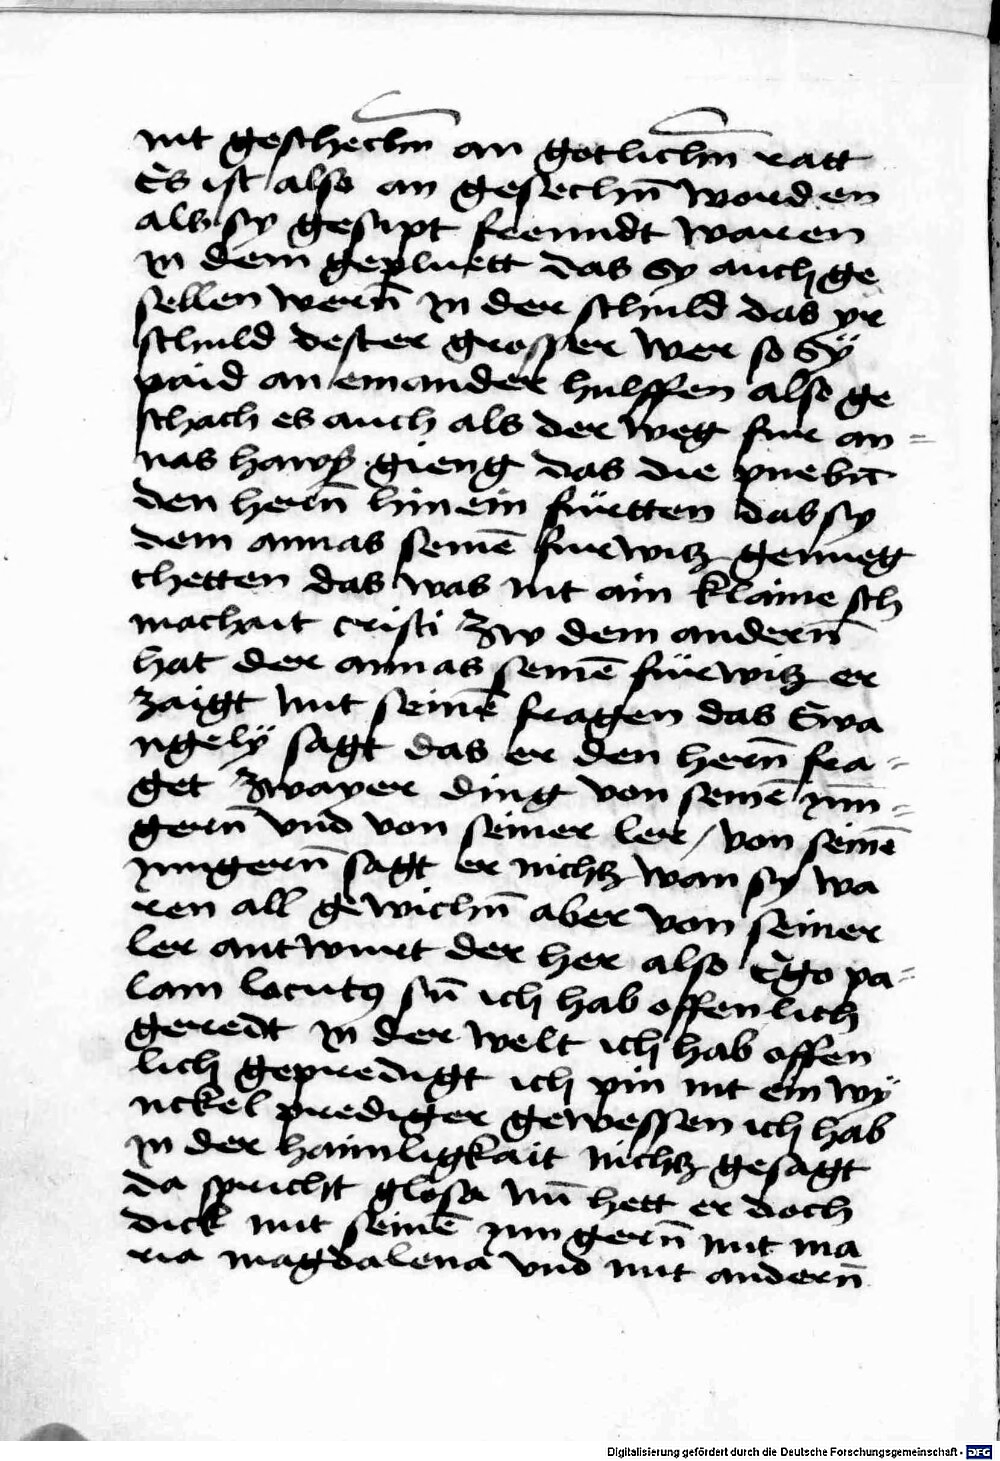 nit geschechn̄ an gotlichn̄ ratt
Es ist also an gesechn̄ worden
als sy gesipt freundt waren
in dem gepluett das sy auch ge
sellen wern̄ in der schuld das yr
schuld dester grosser wer so sÿ
paid an einander hulffen also ge
schach es auch als der weg fur an=
nas haws gieng das die pueben
den hern̄ hinein fürtten das sy
dem annas seinē furwitz genueg
thetten das was nit ain klaine sch
machait cristi Zw dem andern̄
hat der annas seinē fürwitz er
zaigt mit seinē fragen das Ewa
ngelÿ sagt das er den hern̄ fra=
get Zwayer ding von seinē iun̄=
gern̄ vnd von seiner ler / von seinē
iungern̄ sagt er nichtz wan sy wa
ren all gewichn̄ aber von seiner
ler antwurt der her also Ego pa=
lam locutꝰ sū ich hab offenlich
geredt in der welt ich hab offen
lich gepredigt ich pin nit ein wÿ
nckel prediger gewessen ich hab
in der haimligkait nichtz gesagt
da spricht glosa nū hett er doch
dick mit seinē iungern̄ mit ma
ria magdalena vnd mit andern̄
Digitalisierung gefördert durch die Deutsche Forschungsgemeinschaft - DFG